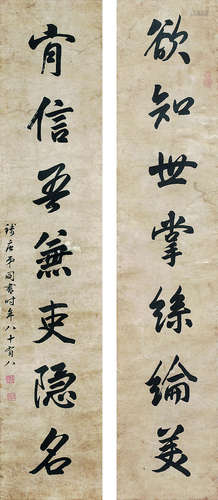 欲知世掌絲綸美
肯信吾無吏隱名
錢唐梁同書時年八十有八